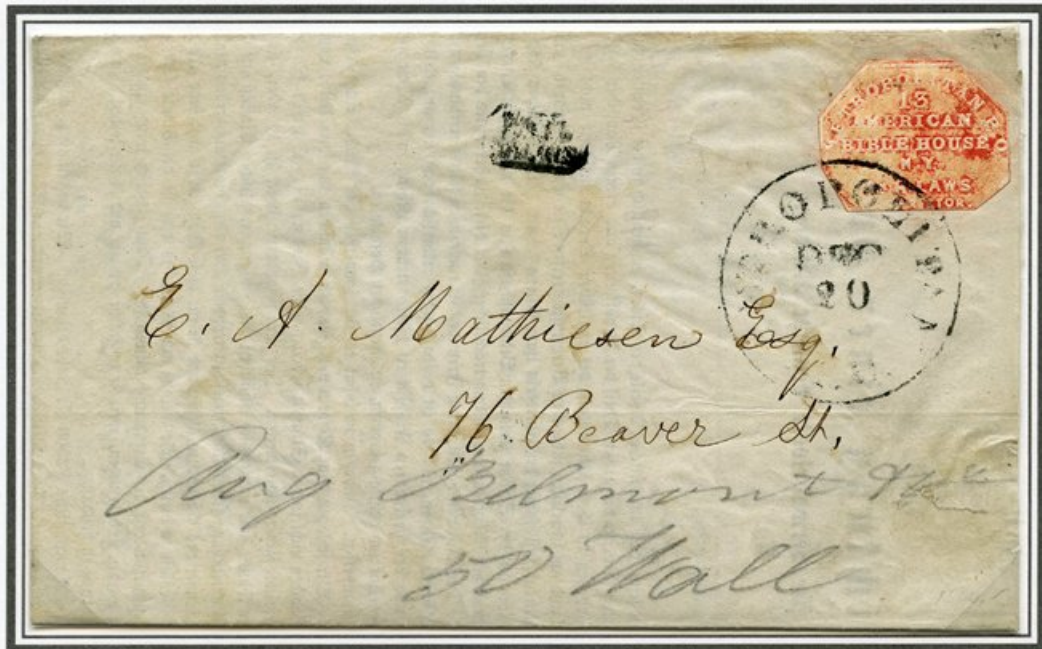 13
AMERICAN
BIBLE HOUSE
N.Y.
DEC
20
E. A. Mathiesen Esq.
76 Beaver St.
Aug Belmont
50 Wall